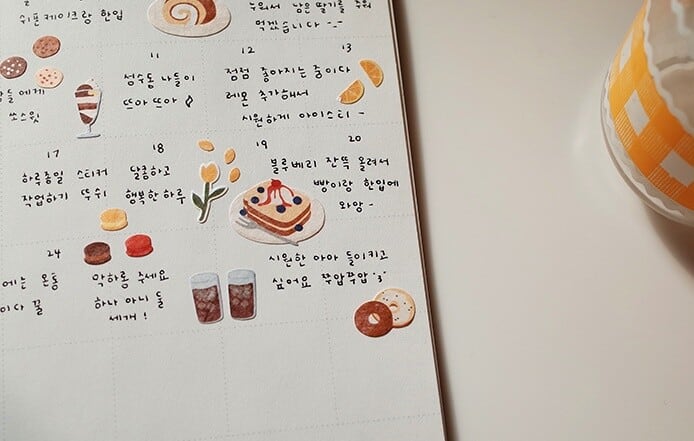 쉬폰케이크랑 한입
누워서 남은 딸기를 주워
먹겠습니다 -.-
11
성수동 나들이
뜨아 뜨아 ♪
12
13
점점 좋아지는 중이다
레몬 추가해서
시원하게 아이스티 -
들에게
쏘스윗
17
하루종일 스티커
작업하기 뚜쉬
18
달콤하고
행복한 하루
19
20
블루베리 잔뜩 올려서
빵이랑 한입에
와앙 -
24
에는 온통
이다 꿀
막하롱 주세요
하나 아니 둘
세개!
시원한 아아 들이키고
싶어요 쭈압쭈압 '3'